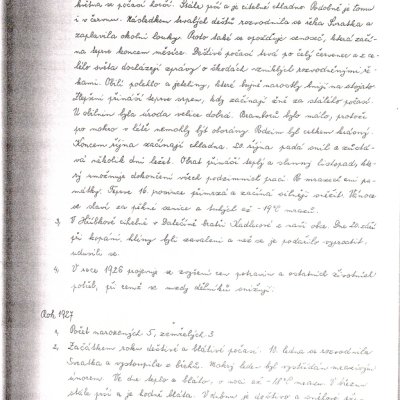 května se počasí horší. Stále prší a je citelně chladno. Podobně je tomu
i v červnu. Následkem trvalých dešťů rozvodnila se řeka Svratka a
zaplavila okolní louky. Proto také se opožďuje senoseč, která začí-
ná teprve koncem měsíce. Deštivé počasí trvá po celý červenec a z ce-
lého světa docházejí zprávy o škodách vzniklých rozvodněnými ře-
kami. Obilí polehlo a jeteliny, které bujně narostly hnijí na stojato.
Zlepšení přináší teprve srpen, kdy začínají žně za stálého počasí.
V obilním byla úroda velice dobrá. Bramborů bylo málo, protože
pro mokro v létě nemohly být oborány. Podzim byl celkem krásný.
Koncem října začínají chladna. 20. října padá sníh a zůstá-
vá několik dní ležet. Obrat přináší teplý a slunný listopad, kte-
rý umožňuje dokončení všech podzimních prací. Po mrazech ani pa-
mátky. Teprve 16. prosince přimrzá a začíná silněji sněžit. Vánoce
se slaví za pěkné sanice a tuhých až -19°C mrazů.
3, V Hůlkově cihelně v bratři Kadlecové z naší obce. Dne 20. září
při kopání hlíny byli zavaleni a než se je podařilo vyprostit,
udusili se.
4, V roce 1926 projevuje se zvýšení cen potravin a ostatních životních
potřeb, při čemž se mzdy dělníků snižují.
Rok 1927
1, Počet narozených 5, zemřelých 3
2, Začátkem roku deštivé a blátivé počasí. 10. ledna se rozvodnila
Svratka a vystoupila z břehů. Mokrý leden byl vystřídán mrazivým
únorem. Ve dne teplo a bláto, v noci až -18°C mrazu. V březnu
stále prší a je hodně bláta. V dubnu je deštivo a